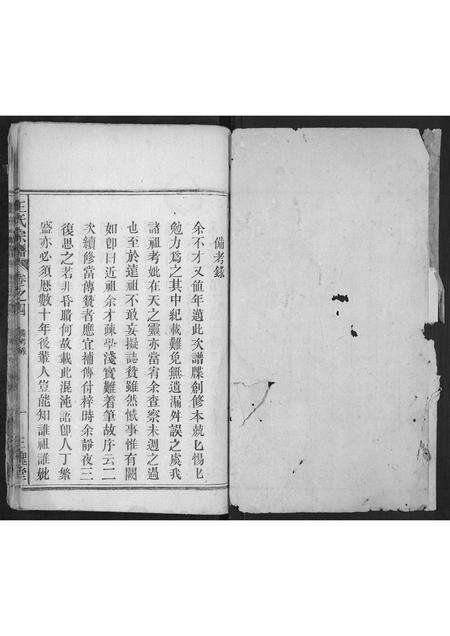 備考錄
余不才又值年邁此次譜牒創修本兢〻惕〻
勉力爲之其中紀載難免無遺漏舛誤之虞我
諸祖考妣在天之靈亦當宥余查察未週之過
也至於遠祖不敢妄擬誌贊雖然憾事惟有闕
如卽日近祖余才疎學淺實難着筆故序云二
次續修當傳贊者應宜補傳付梓時余靜夜三
復思之若非昏聵何故載此混沌語卽人丁繁
盛亦必須歷數十年後輩人豈能知誰祖誰妣
王氏宗譜 卷之四 備考錄 一 三槐堂